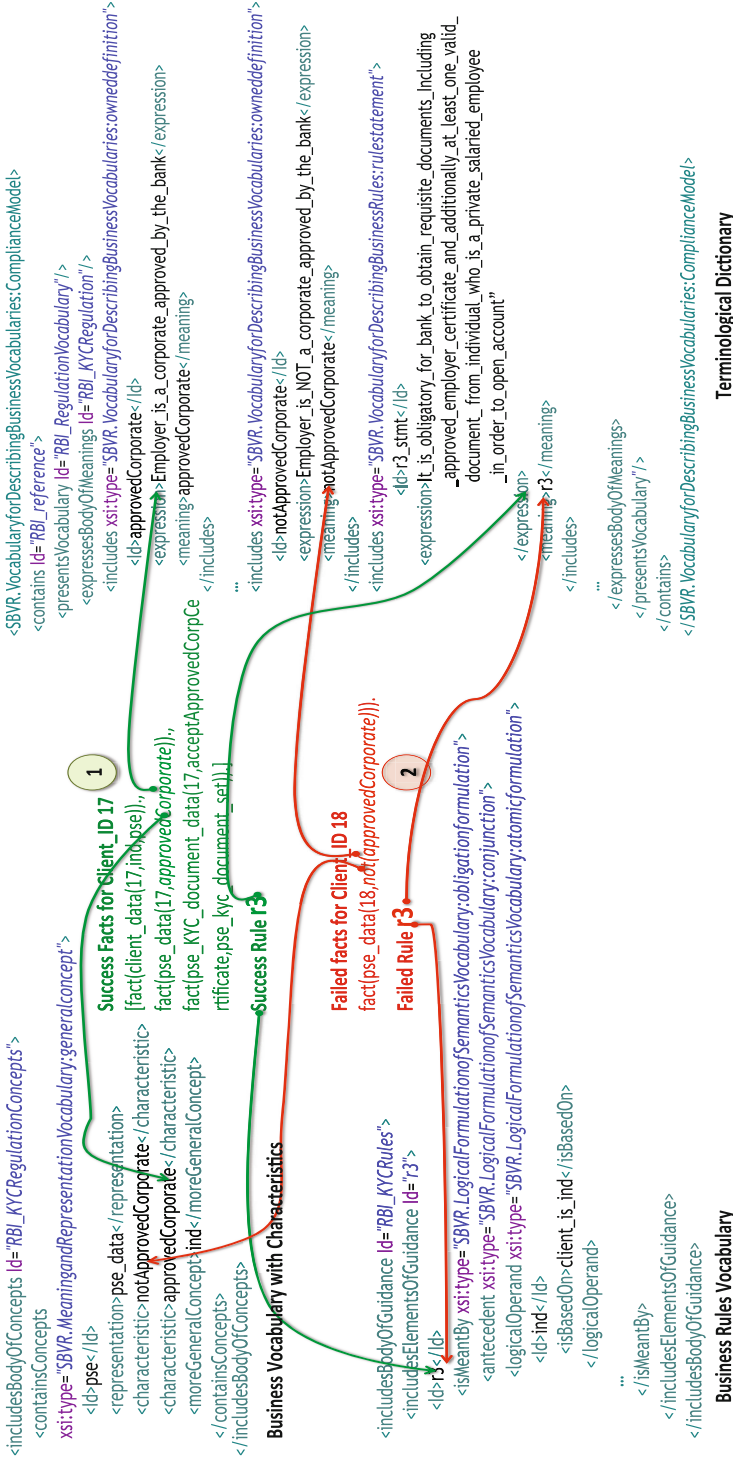 <includesBodyOfConcepts Id="RBI_KYCRegulationConcepts">
<containsConcepts
xsi:type="SBVR.MeaningandRepresentationVocabulary:generalconcept">
<Id>pse</Id>
<representation>pse_data</representation>
<characteristic>notApprovedCorporate</characteristic>
<characteristic>approvedCorporate</characteristic>
<moreGeneralConcept>ind</moreGeneralConcept>
</containsConcepts>
</includesBodyOfConcepts>
Business Vocabulary with Characteristics
<includesBodyOfGuidance Id="RBI_KYCRules">
<includesElementsOfGuidance Id="r3">
<Id>r3</Id>
<isMeantBy xsi:type="SBVR.LogicalFormulationofSemanticsVocabulary:obligationformulation">
<antecedent xsi:type="SBVR.LogicalFormulationofSemanticsVocabulary:conjunction">
<logicalOperand xsi:type="SBVR.LogicalFormulationofSemanticsVocabulary:atomicformulation">
<Id>ind</Id>
<isBasedOn>client_is_ind</isBasedOn>
</logicalOperand>
...
</isMeantBy>
</includesElementsOfGuidance>
</includesBodyOfGuidance>
Business Rules Vocabulary
1
Success Facts for Client_ID 17
[fact(client_data(17,ind,pse)).,
fact(pse_data(17,approvedCorporate)).,
fact(pse_KYC_document_data(17,acceptApprovedCorpCe
rtificate,pse_kyc_document_set)).]
Success Rule r3
Failed facts for Client_ID 18
fact(pse_data(18,not(approvedCorporate))).
2
Failed Rule r3
<SBVR.VocabularyforDescribingBusinessVocabularies:ComplianceModel>
<contains Id="RBI_reference">
<presentsVocabulary Id="RBI_RegulationVocabulary"/>
<expressesBodyOfMeanings Id="RBI_KYCRegulation"/>
<includes xsi:type="SBVR.VocabularyforDescribingBusinessVocabularies:owneddefinition">
<Id>approvedCorporate</Id>
<expression>Employer_is_a_corporate_approved_by_the_bank</expression>
<meaning>approvedCorporate</meaning>
</includes>
...
<includes xsi:type="SBVR.VocabularyforDescribingBusinessVocabularies:owneddefinition">
<Id>notApprovedCorporate</Id>
<expression>Employer_is_NOT_a_corporate_approved_by_the_bank</expression>
<meaning>notApprovedCorporate</meaning>
</includes>
<includes xsi:type="SBVR.VocabularyforDescribingBusinessRules:rulestatement">
<Id>r3_stmt</Id>
<expression>It_is_obligatory_for_bank_to_obtain_requisite_documents_Including
_approved_employer_certificate_and_additionally_at_least_one_valid_
document_from_individual_who_is_a_private_salaried_employee
_in_order_to_open_account"
</expression>
<meaning>r3</meaning>
</includes>
...
</expressesBodyOfMeanings>
</presentsVocabulary"/>
</contains>
</SBVR.VocabularyforDescribingBusinessVocabularies:ComplianceModel>
Terminological Dictionary